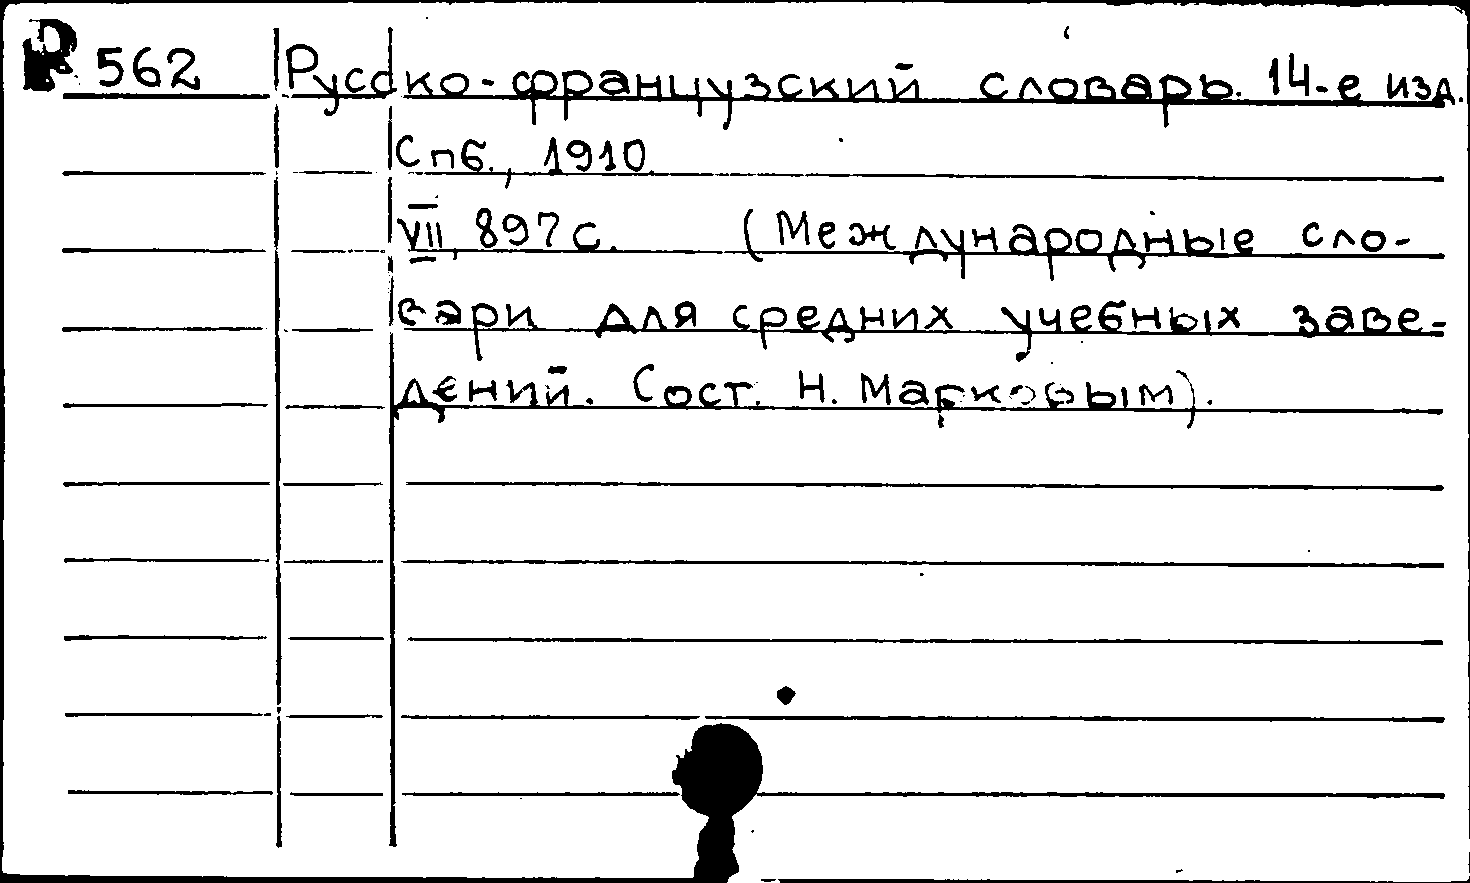 R 562 Русско-французский словарь. 14-е изд.
Спб., 1910.
VII, 897 с. (Международные сло-
вари для средних учебных заве-
дений. Сост. Н. Марковым).